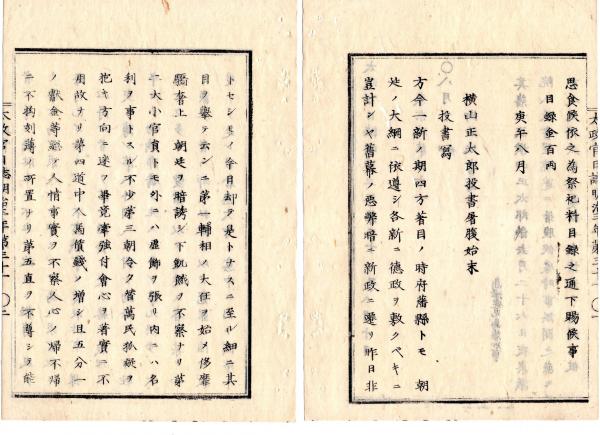 思食候依之為祭祀料目録之通下賜候事
目録金百両
庚午八月
〇八月
投書寫
横山正太郎投書屠腹始末
方今一新ノ期四方著目ノ時府藩縣トモ朝
廷ノ大綱ニ依遵シ各新ニ徳政ヲ敷クヘキニ
豈計ンヤ舊幕ノ惡弊暗ニ新政ニ遷リ昨日非
トセシモノ今日却テ是トナスニ至ル細ニ其
目ヲ擧テ云ンニ第一輔相ノ大任ヲ始メ侈靡
驕奢上朝廷ヲ暗誘シ下飢餓ヲ不察ナリ第
二大小官員トモ外ニハ虚飾ヲ張リ内ニハ名
利ヲ事トスル不少第三朝令夕替萬民狐疑ヲ
抱キ方向ニ迷フ畢竟牽強付會心ヲ著實ニ不
用故ナリ第四道中人馬賃錢ノ増シ且五分一
ノ獻金等總テ人情事實ヲ不察人心ノ帰不帰
ニ不拘刻薄ノ所置ナリ第五直ヲ不尊シテ能
太政官日誌明治三年第三十一